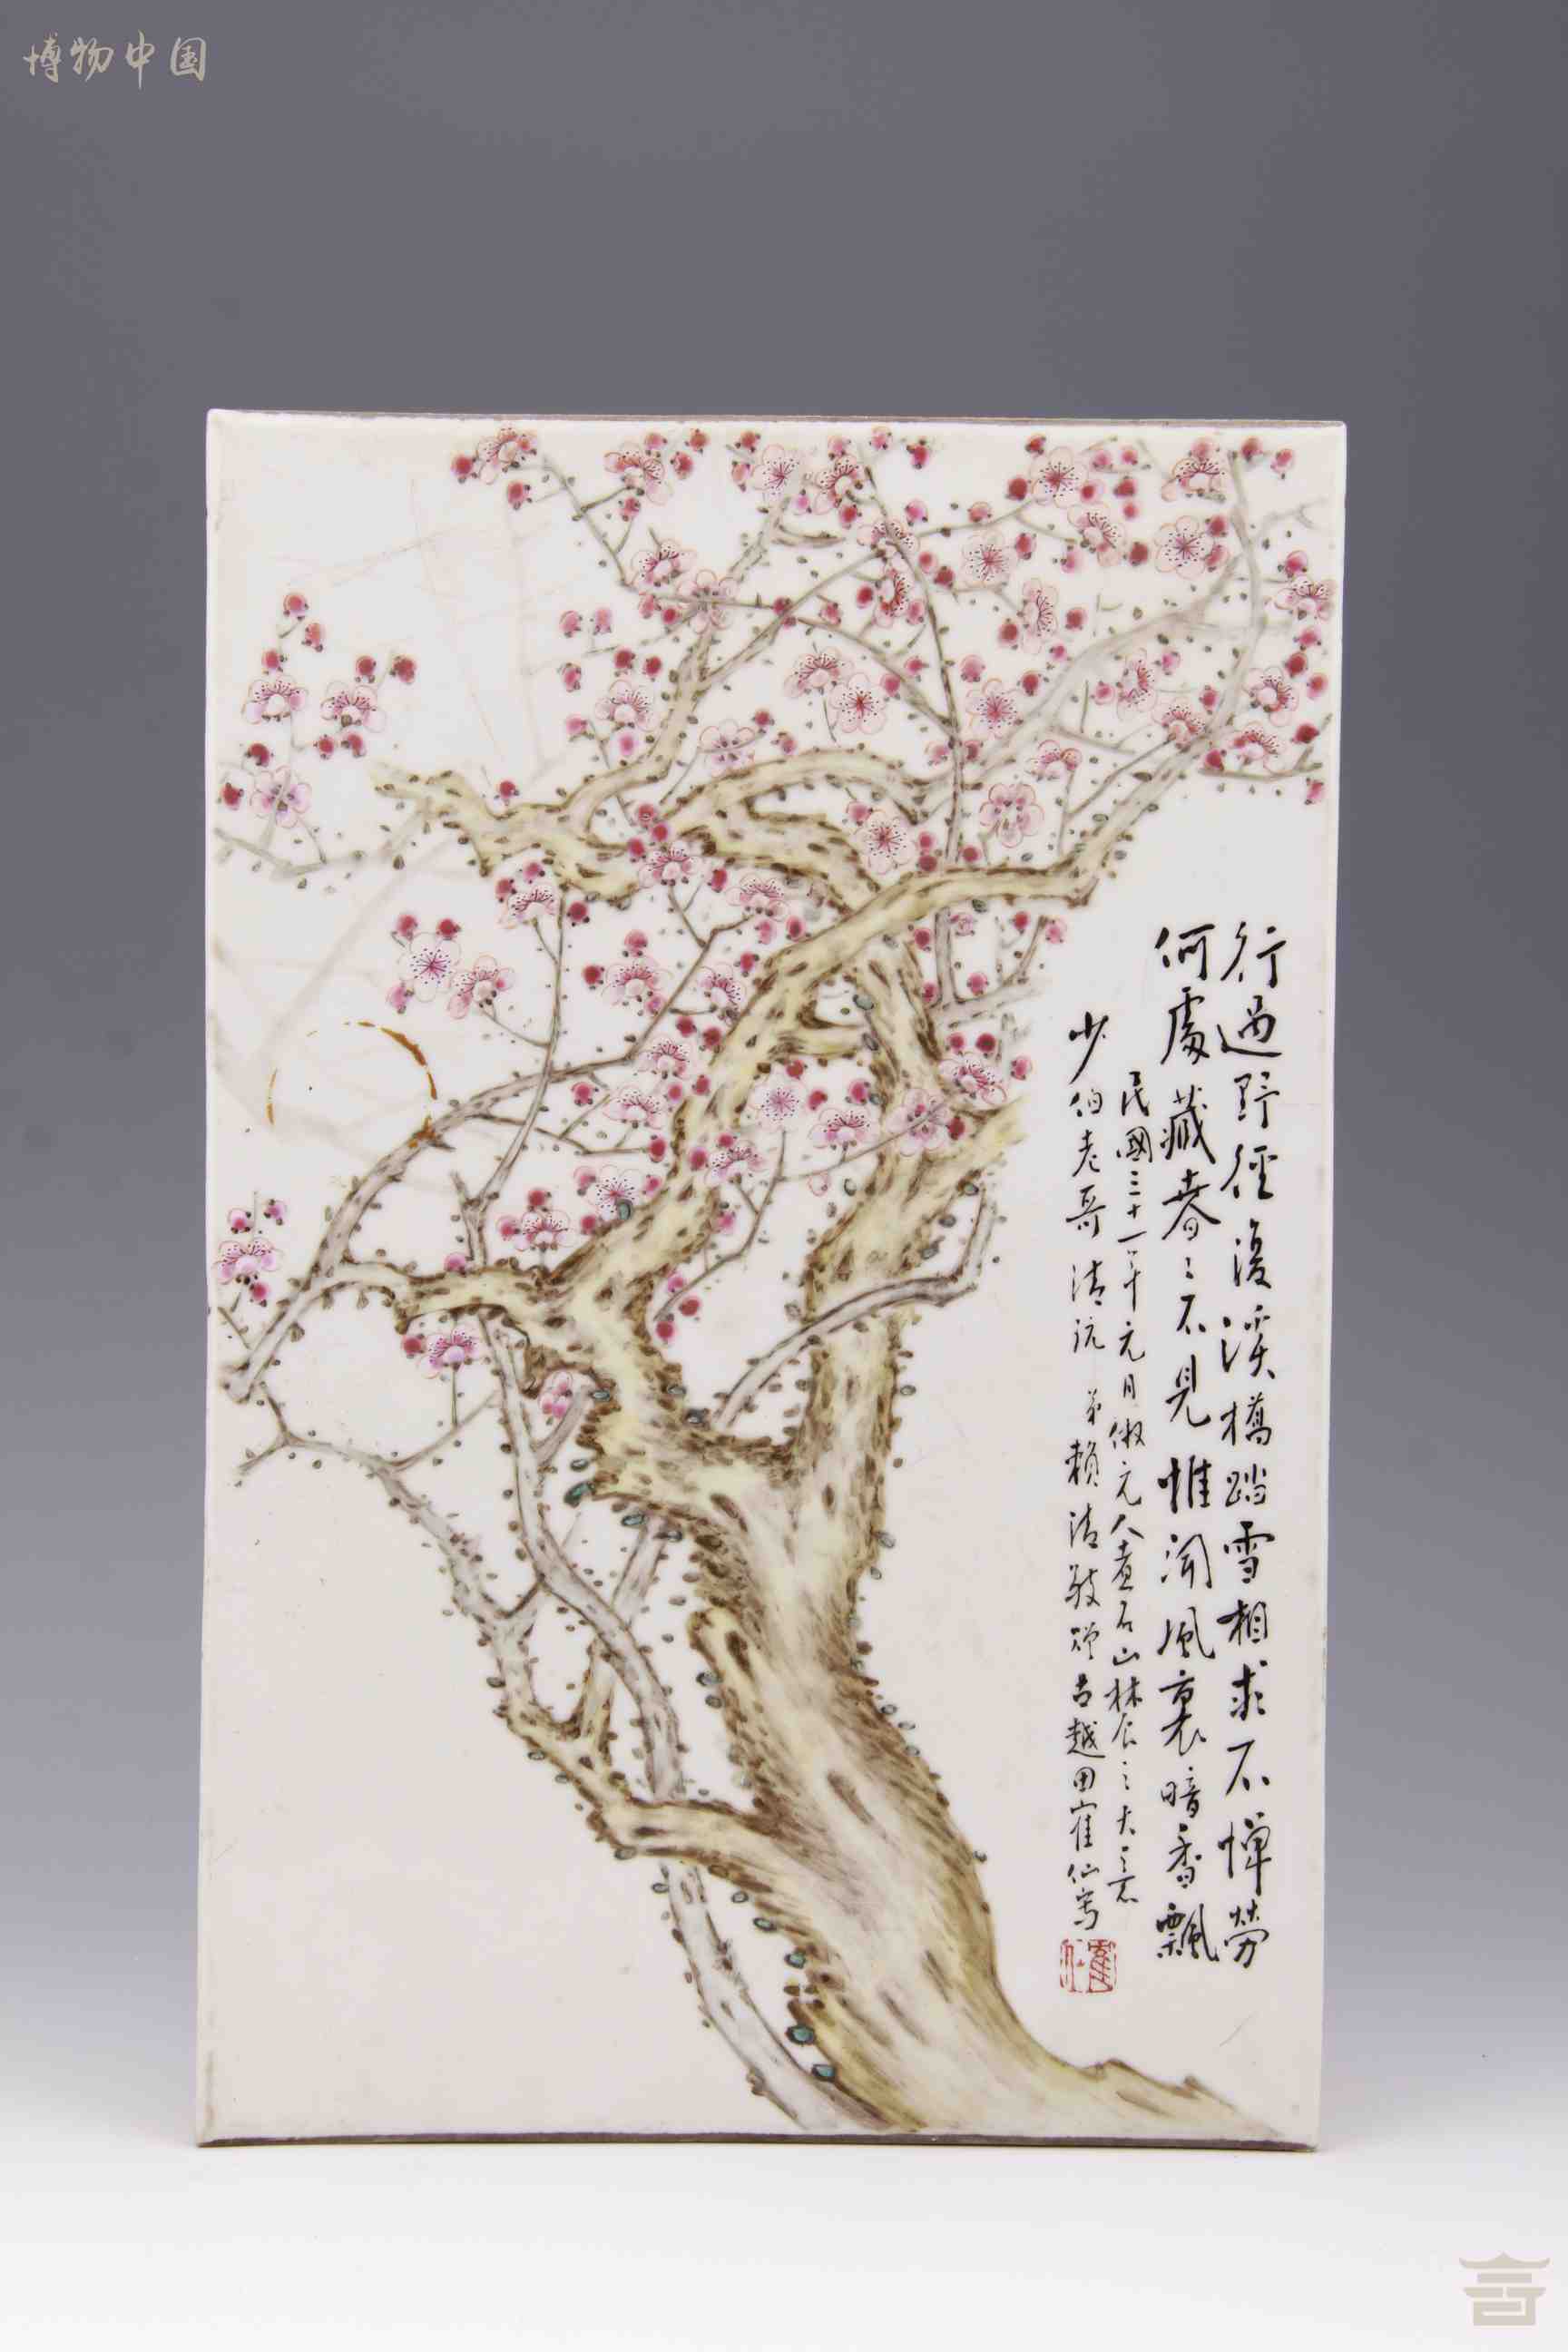 博物中国
行過野徑復溪橋踏雪相求不憚勞
何處藏春々不見惟聞風裏暗香飄
民國三十一年元月倣元人煮石山農之大意
少伯老哥清玩 弟賴清 贈 古越田隺仙寫
隺仙